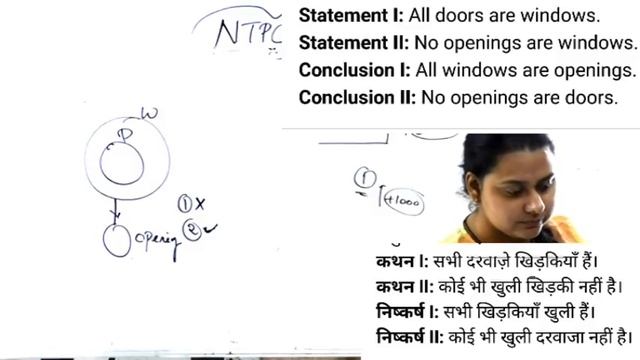 NTPC
Statement I: All doors are windows.
Statement II: No openings are windows.
Conclusion I: All windows are openings.
Conclusion II: No openings are doors.
W
D
① x
openig ② ✓
①
+1000
कथन I: सभी दरवाज़े खिड़कियाँ हैं।
कथन II: कोई भी खुली खिड़की नहीं है।
निष्कर्ष I: सभी खिड़कियाँ खुली हैं।
निष्कर्ष II: कोई भी खुली दरवाजा नहीं है।